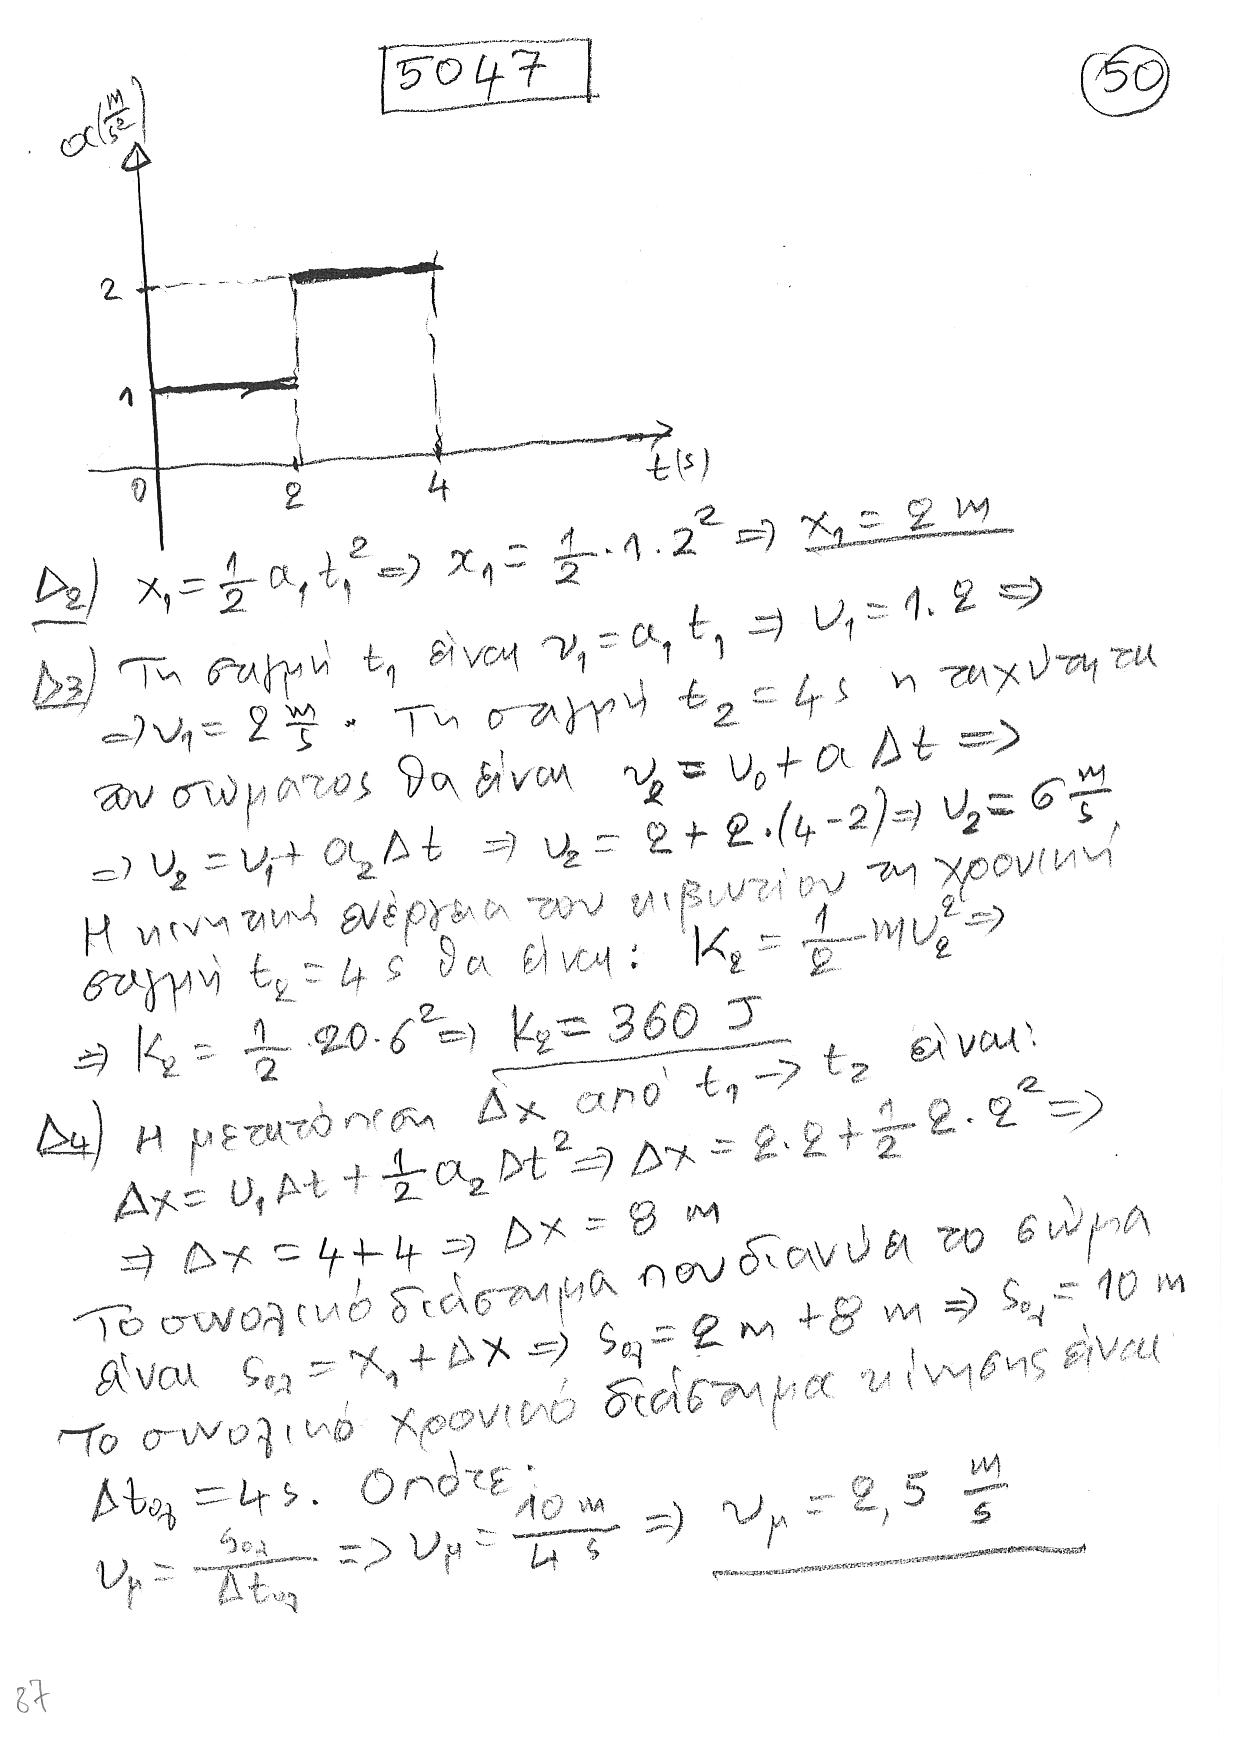 5047
50
α(m/s²)
2
1
0 2 4 t(s)
Δ2) x₁ = 1/2 α₁ t₁² ⇒ x₁ = 1/2 · 1 · 2² ⇒ x₁ = 2 m
Δ3) Τη στιγμή t₁ είναι υ₁ = α₁ t₁ ⇒ υ₁ = 1 · 2 ⇒
⇒ υ₁ = 2 m/s . Τη στιγμή t₂ = 4 s η ταχύτητα
του σώματος θα είναι υ₂ = υ₀ + α Δt ⇒
⇒ υ₂ = υ₁ + α₂ Δt ⇒ υ₂ = 2 + 2 · (4 - 2) ⇒ υ₂ = 6 m/s .
Η κινητική ενέργεια του κιβωτίου τη χρονική
στιγμή t₂ = 4 s θα είναι : K₂ = 1/2 m υ₂² ⇒
⇒ K₂ = 1/2 · 20 · 6² ⇒ K₂ = 360 J
Δ4) Η μετατόπιση Δx από t₁ → t₂ είναι :
Δx = υ₁ Δt + 1/2 α₂ Δt² ⇒ Δx = 2 · 2 + 1/2 2 · 2² ⇒
⇒ Δx = 4 + 4 ⇒ Δx = 8 m
Το συνολικό διάστημα που διανύει το σώμα
είναι sολ = x₁ + Δx ⇒ sολ = 2 m + 8 m ⇒ sολ = 10 m
Το συνολικό χρονικό διάστημα κίνησης είναι
Δtολ = 4 s. Οπότε :
υμ = sολ/Δtολ ⇒ υμ = 10 m/4 s ⇒ υμ = 2,5 m/s
37